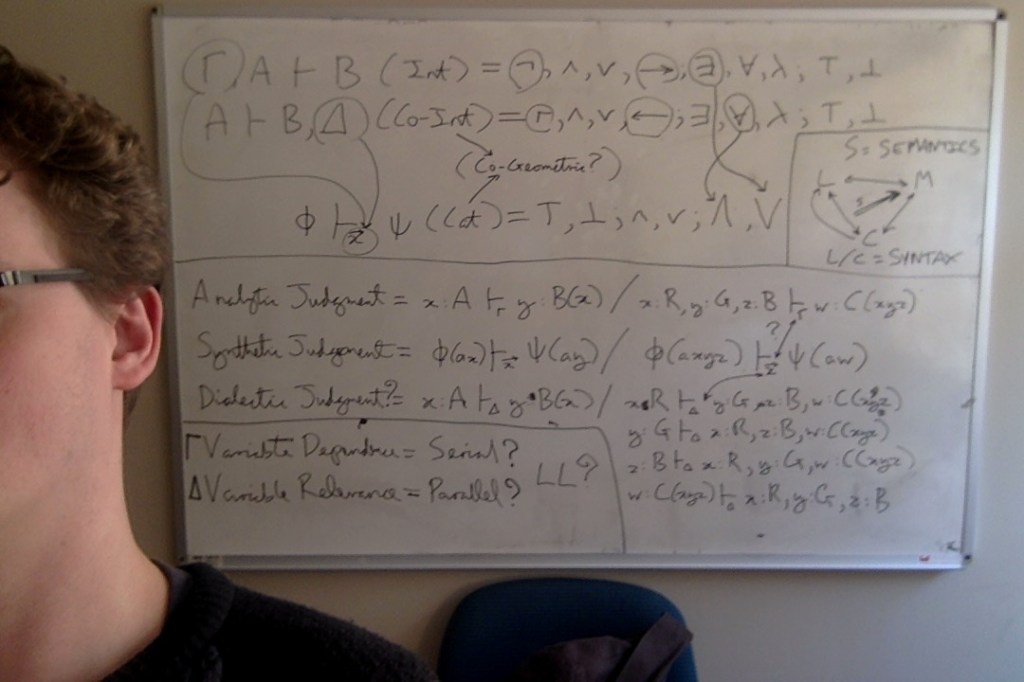 Γ, A ⊢ B (Int) = ¬, ∧, ∨, →; ∃, ∀, λ; ⊤, ⊥
A ⊢ B, Δ (Co-Int) = ⌐, ∧, ∨, ←; ∃, ∀, λ; ⊤, ⊥
(Co-Geometric?)
Φ ⊢x⃗ Ψ (Cat) = ⊤, ⊥, ∧, ∨; ⋀, ⋁
S = SEMANTICS
L M
S
C
L/C = SYNTAX
Analytic Judgment = x:A ⊢Γ y:B(x) / x:R, y:G, z:B ⊢Γ w:C(xyz)
?
Synthetic Judgment = Φ(ax) ⊢x⃗ Ψ(ay) / Φ(axyz) ⊢z⃗ Ψ(aw)
Dialectic Judgment? = x:A ⊢Δ y:B(x) / x:R ⊢Δ y:G, z:B, w:C(xyz)
y:G ⊢Δ x:R, z:B, w:C(xyz)
z:B ⊢Δ x:R, y:G, w:C(xyz)
w:C(xyz) ⊢Δ x:R, y:G, z:B
Γ Variable Dependence = Serial?
Δ Variable Relevance = Parallel?
LL?